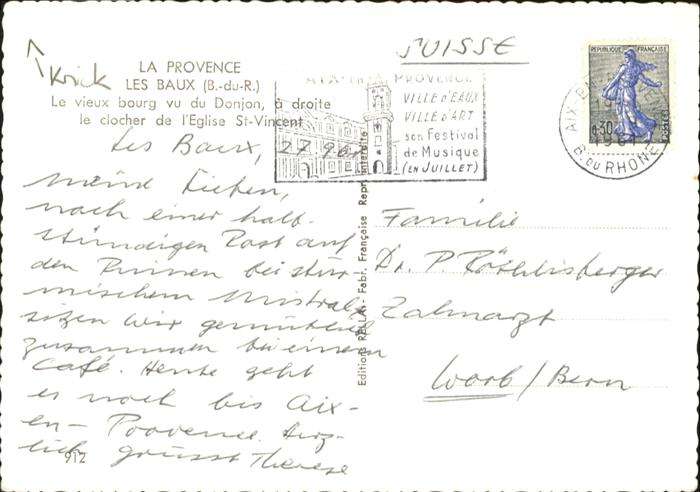 SUISSE
Krick
LA PROVENCE
LES BAUX (B.-du-R.)
Le vieux bourg vu du Donjon, à droite
le clocher de l'Eglise St-Vincent
AIX-EN-PROVENCE
VILLE d'EAUX
VILLE d'ART
son Festival
de Musique
(EN JUILLET)
REPUBLIQUE FRANÇAISE
0,30
POSTES
AIX-EN-
1961
B. DU RHONE
Les Baux, 27.9.61
meine Lieben,
nach einer halb-
stündigen Rast auf
den Ruinen bei stür-
mischem Mistral
sitzen wir gemütlich
zusammen bei einem
Café. Heute geht
es noch bis Aix-
en-Provence. Herz-
lich grüsst Therese
912
Editions RELLA - Fabr. Française Repr. Interdite
Familie
Dr. P. Röthlisberger
Zahnarzt
Worb/Bern